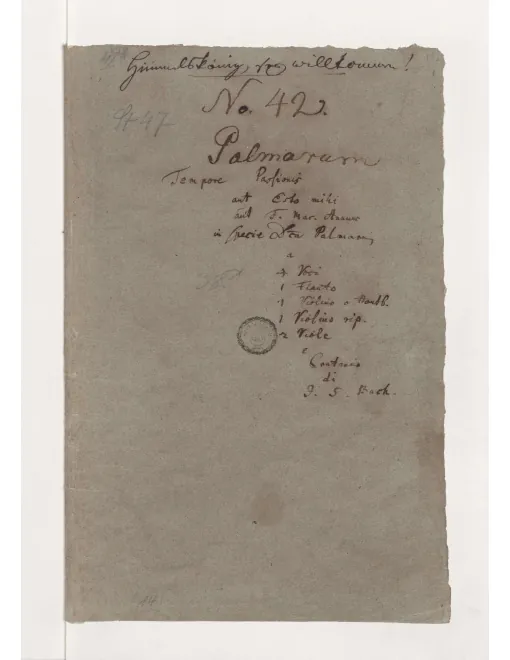 Himmelskönig, sey willkommen!
No. 42.
St 47
Palmarum
Tempore Passionis
aut Esto mihi
aut F. Mar. Annunc
in specie Palmarum
a
4 Voci
1 Flauto
1 Violino o Hautb.
1 Violino rip.
2 Viole
e
Continuo
di
J. S. Bach.